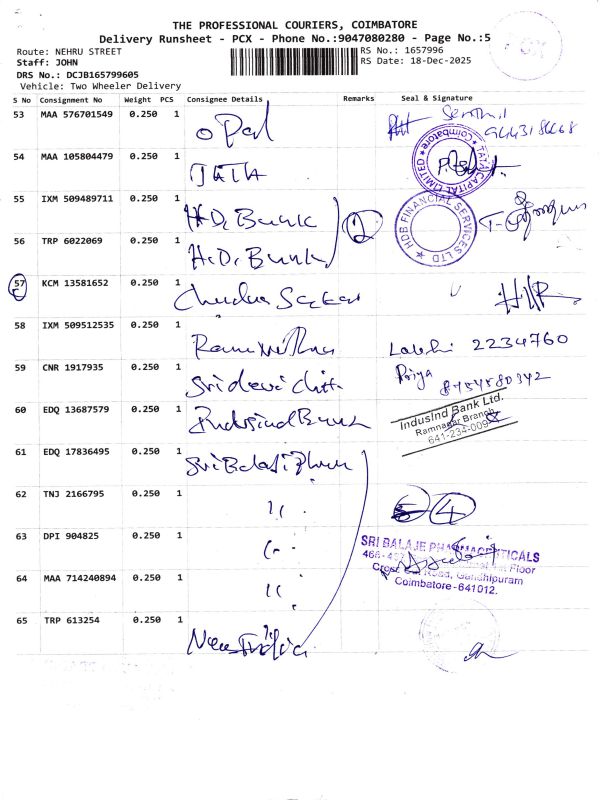 THE PROFESSIONAL COURIERS, COIMBATORE
Delivery Runsheet - PCX - Phone No.:9047080280 - Page No.:5
PCX
Route: NEHRU STREET
RS No.: 1657996
Staff: JOHN
RS Date: 18-Dec-2025
DRS No.: DCJB165799605
Vehicle: Two Wheeler Delivery
S No Consignment No Weight PCS Consignee Details Remarks Seal & Signature
53 MAA 576701549 0.250 1 Opal
54 MAA 105804479 0.250 1 TATA
TATA CAPITAL LIMITED Coimbatore
55 IXM 509489711 0.250 1 H.D. Bank 2
HDB FINANCIAL SERVICES LTD
56 TRP 6022069 0.250 1 H.D. Bank
57 KCM 13581652 0.250 1
58 IXM 509512535 0.250 1
2234760
59 CNR 1917935 0.250 1 Sridevi Chit
Priya
8754580342
60 EDQ 13687579 0.250 1 IndusInd Bank
IndusInd Bank Ltd.
Ramnagar Branch
61 EDQ 17836495 0.250 1 Sri Balaji
62 TNJ 2166795 0.250 1 " 4
63 DPI 904825 0.250 1 "
SRI BALAJE PHARMACEUTICALS
64 MAA 714240894 0.250 1 "
Floor
Cross Cut Road, Gandhipuram
Coimbatore-641012.
65 TRP 613254 0.250 1 "
New India